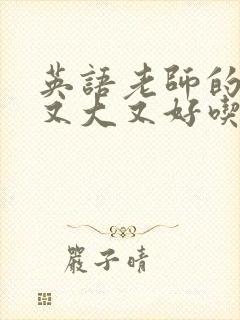 英語老師的
又大又好喫
嚴子晴